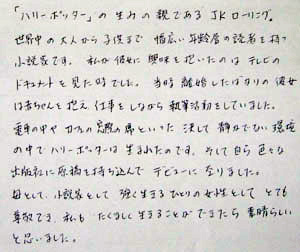 「ハリーポッター」の生みの親であるJKローリング。
世界中の大人から子供まで幅広い年齢層の読者を持つ
小説家です。私が彼女に興味を抱いたのはテレビの
ドキュメントを見た時でした。当時離婚したばかりの彼女
は赤ちゃんを抱え仕事をしながら執筆活動をしていました。
電車の中やカフェの窓際の席といった決して静かでない環境
の中でハリーポッターは生まれたのです。そして自ら色々な
出版社に原稿を持ち込んでデビューになりました。
母として、小説家として強く生きるひとりの女性としてとても
尊敬でき、私もたくましく生きることができたら素晴らしい
と思いました。